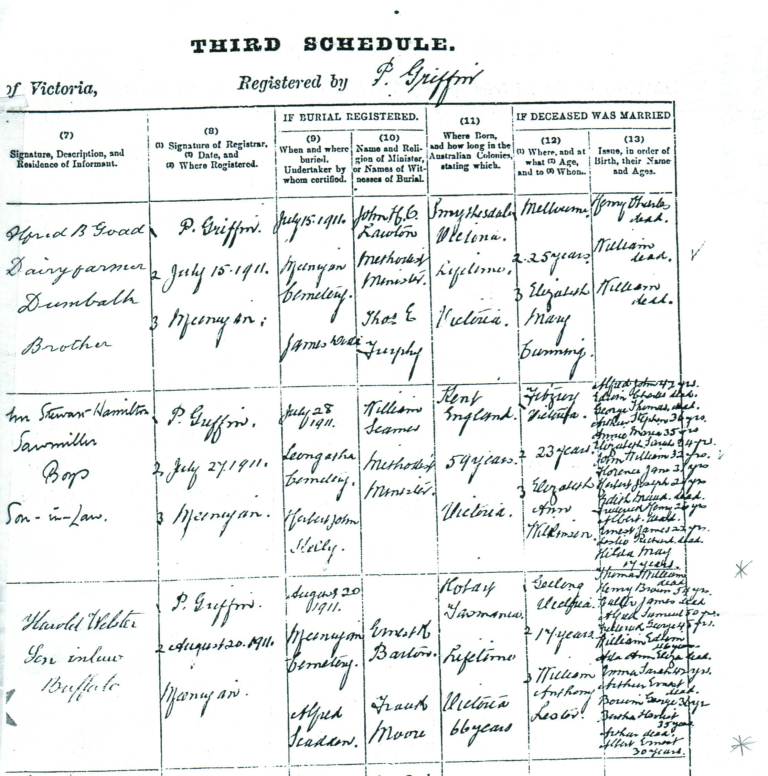 THIRD SCHEDULE.
of Victoria,
Registered by P. Griffin
IF BURIAL REGISTERED.
IF DECEASED WAS MARRIED
(7)
Signature, Description, and
Residence of Informant.
(8)
(1) Signature of Registrar,
(2) Date, and
(3) Where Registered.
(9)
When and where
buried.
Undertaker by
whom certified.
(10)
Name and Reli-
gion of Minister,
or Names of Wit-
nesses of Burial.
(11)
Where Born,
and how long in the
Australian Colonies,
stating which.
(12)
(1) Where, and at
what (2) Age,
and to (3) Whom.
(13)
Issue, in order of
Birth, their Name
and Ages.
Alfred B Goad
Dairyfarmer
Dumbalk
Brother
P. Griffin.
2 July 15. 1911.
3 Meeniyan.
July 15. 1911.
Meeniyan
Cemetery.
James
John H. C.
Lawton
Methodist
Minister.
Thos E
Turphy
Smythesdale
Victoria.
Lifetime.
Victoria.
Melbourne
2 25 years
3 Elizabeth
Mary
Cunning.
Henry Charles
dead.
William
dead.
William
dead.
Stewart Hamilton
Sawmiller
Boys
Son-in-Law.
P. Griffin
2 July 27. 1911.
3 Meeniyan.
July 28
1911.
Leongatha
Cemetery.
Herbert John
William
Seamer
Methodist
Minister.
Kent
England.
59 years.
Victoria.
Fitzroy
Victoria.
2 23 years.
3 Elizabeth
Ann
Wilkinson.
Alfred John 42 yrs.
Edwin Charles dead.
George Thomas, dead.
Arthur Stephen 36 yrs.
Annie Maria 35 yrs
Elizabeth Sarah 34 yrs.
John William 32 yrs.
Florence Jane 31 yrs
Herbert Joseph
Edith Maud. dead.
Frederick Henry 26 yrs
Albert. dead.
Ernest James 22 yrs.
Leslie Richard. dead.
Hilda May
17 years.
Harold Webster
Son in law
Buffalo
P. Griffin
2 August 20. 1911.
Meeniyan.
August 20
1911.
Meeniyan
Cemetery.
Alfred
Scadden.
Ernest R
Barton.
Frank
Moore
Hobart
Tasmania.
Lifetime
Victoria
66 years
Geelong
Victoria
2 17 years
3 William
Anthony
Lester.
Thomas William
dead
Henry Brown
Walter James dead
Alfred Samuel 50 yrs.
Frederick George 48 yrs.
William Edwin
46 years
Ada Ann Eliza dead.
Emma Sarah 42 yrs.
Arthur Ernest
dead.
George 36 yrs
Bertha Harriet
35 years
Arthur dead
Albert Ernest
30 years.